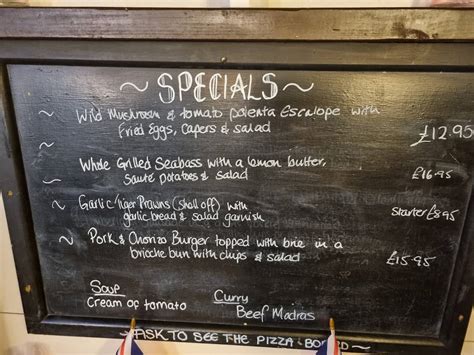 ~ SPECIALS ~
~ Wild Mushroom & tomato polenta Escalope with
Fried Eggs, Capers & salad
£12.95
~ Whole Grilled Seabass with a lemon butter,
sauté potatoes & salad
£16.95
~ Garlic Tiger Prawns (shall off) with
garlic bread & salad garnish
Starter £8.95
~ Pork & Chorizo Burger topped with brie in a
brioche bun with chips & salad
£15.95
Soup
Cream of tomato
Curry
Beef Madras
ASK TO SEE THE PIZZA BOARD